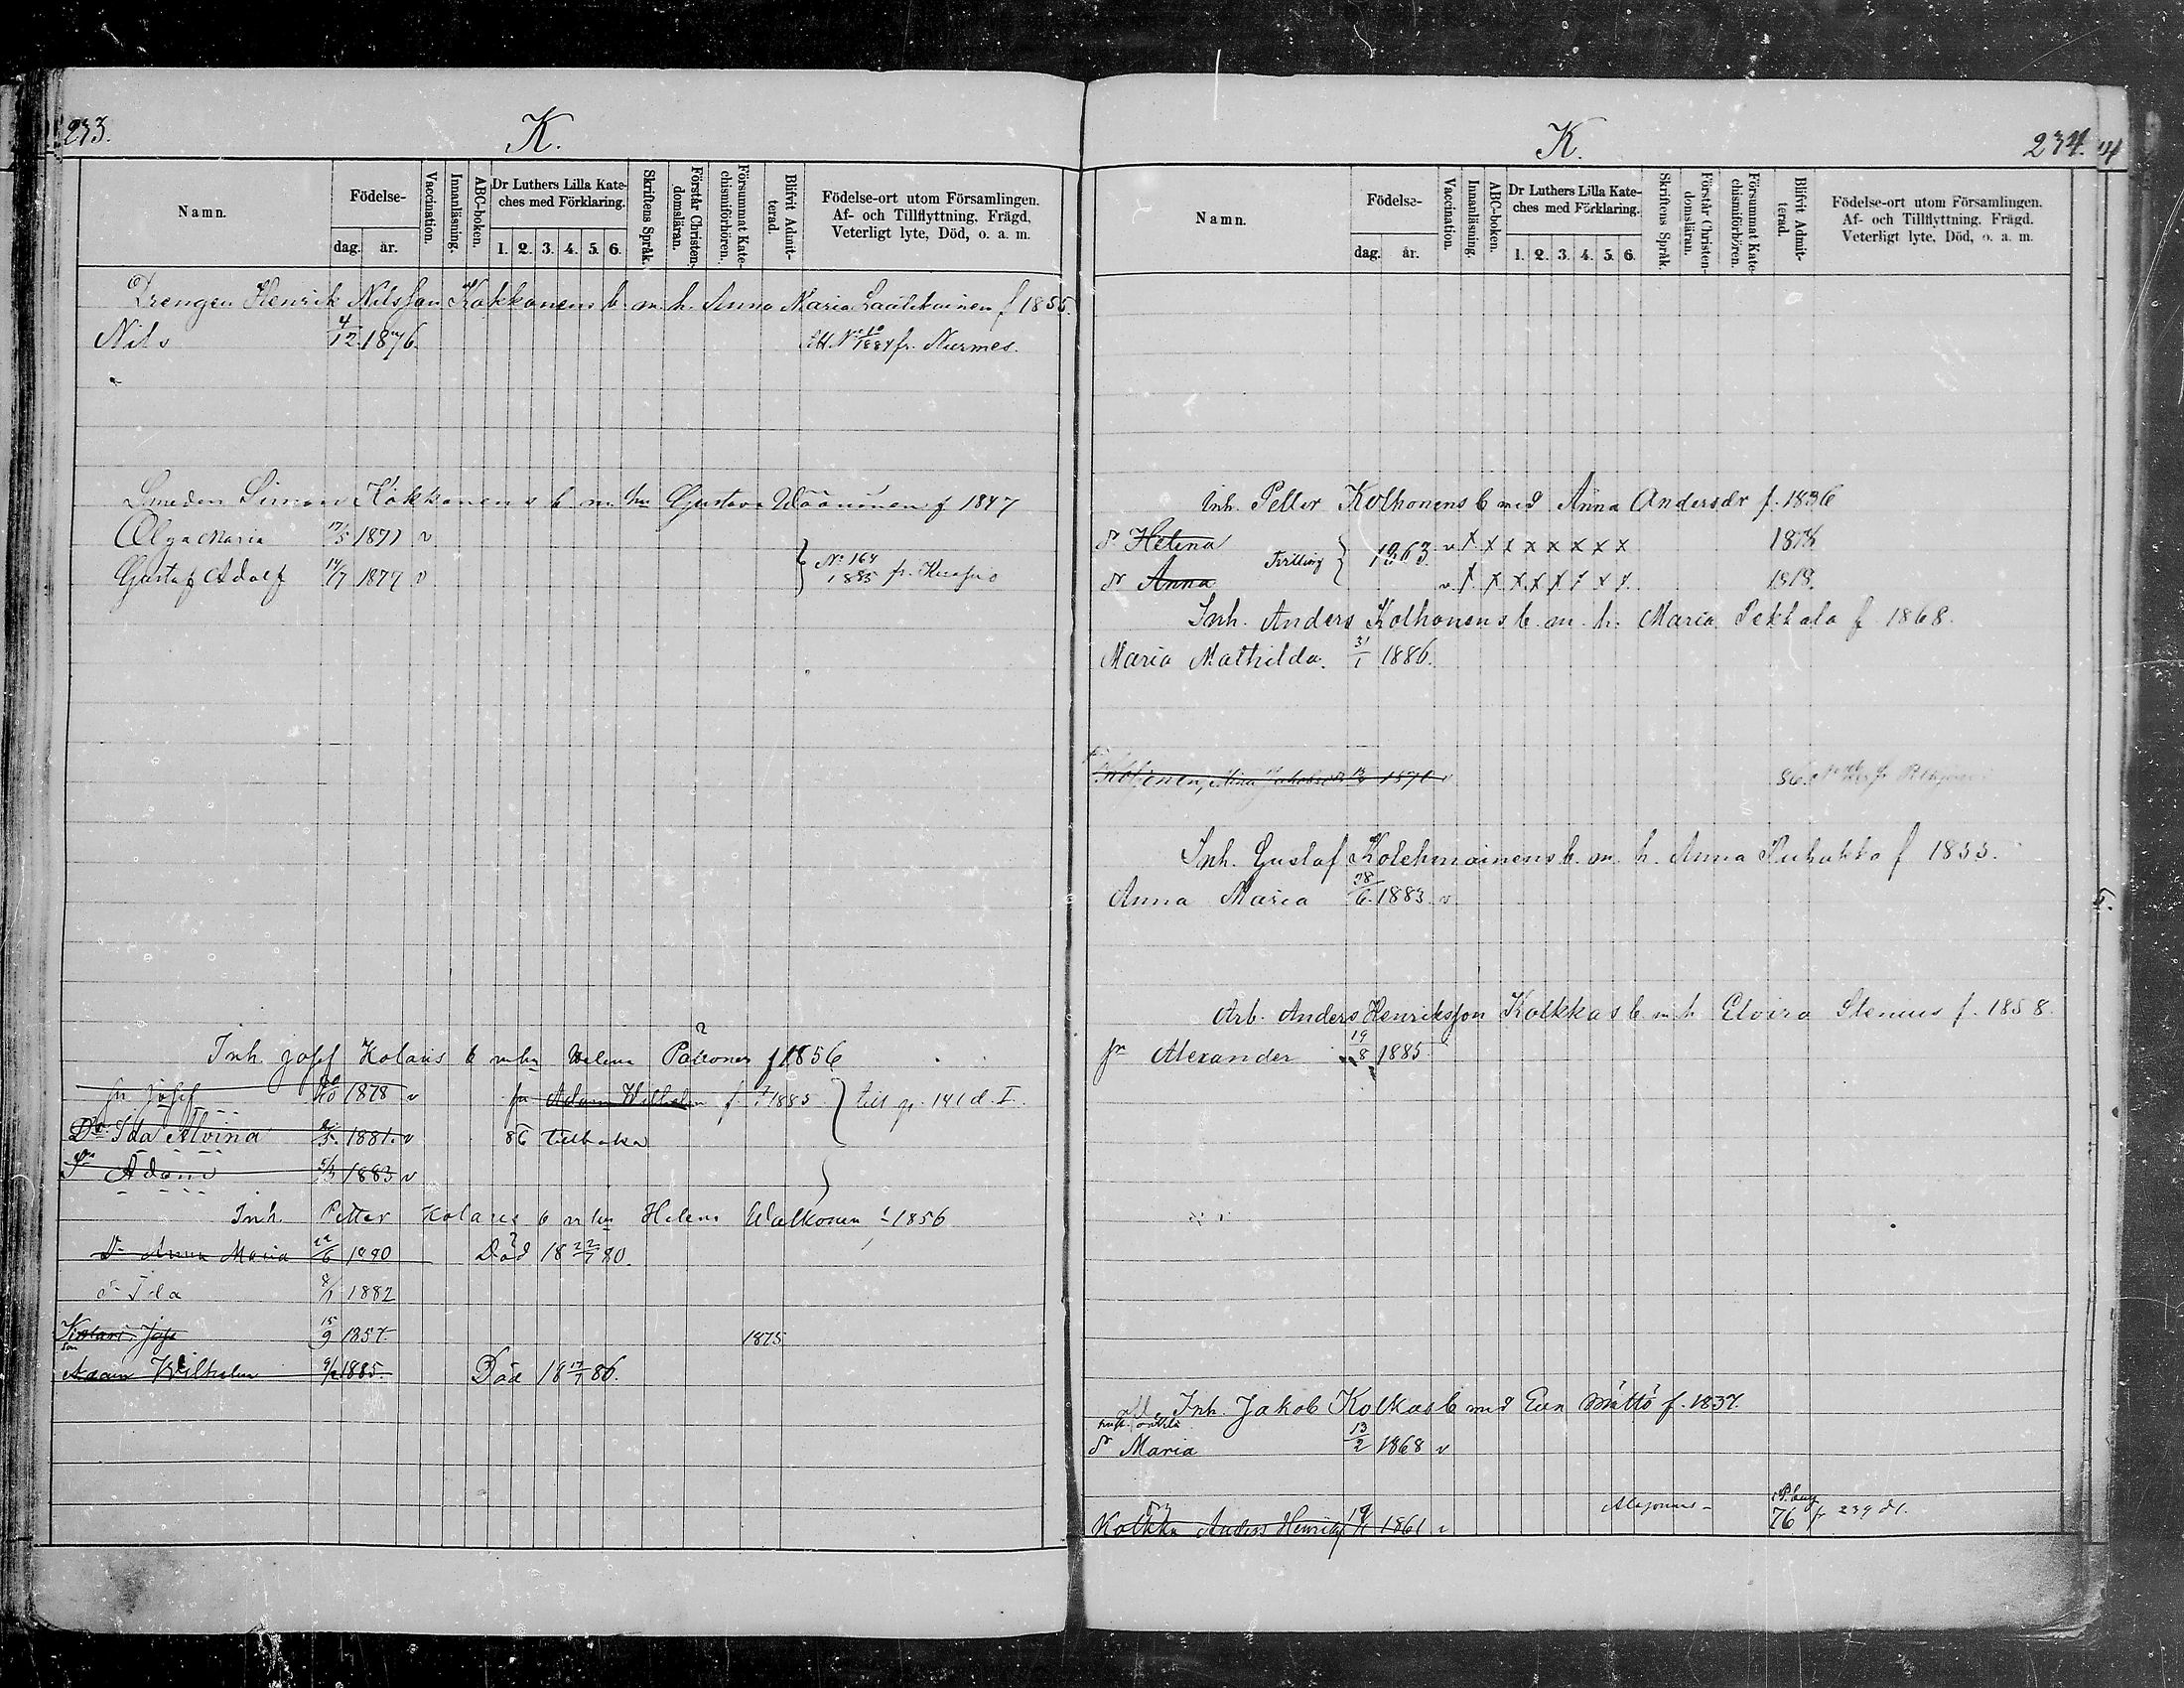 233.
K.
Namn.
Födelse-
dag. år.
Vaccination.
Innanläsning.
ABC-boken.
Dr Luthers Lilla Kate-
ches med Förklaring.
1. 2. 3. 4. 5. 6.
Skriftens Språk.
Förstår Christen-
domsläran.
Försummat Kate-
chismiförhören.
Blifvit Admit-
terad.
Födelse-ort utom Församlingen.
Af- och Tillflyttning, Frägd,
Veterligt lyte, Död, o. a. m.
Drengen Henrik Nilsson Kokkonens b. m. h. Anna Maria f 1855.
Nils 4/12 1876. 1884 fr. Nurmes.
Smeden Simon Kokkonens b. m. hu Gustava Väänänen f 1847
Olga Maria 17/5 1871 v
Gustaf Adolf 14/7 1877 v
No 164
1885 fr. Kuopio
Inh. Josef Kolaris b m hu f 1856
Josef 1878 v Adam Wilhelm f. 1885 till p. 141 d. I.
Dr Ida Alvina 1881. v 86 tillbaka
Sn Adam 5/3 1883 v
Inh. Petter Kolaris b m hu Helena Walkonen f 1856
Dr Anna Maria 22/6 1880 Död 18 22/7 80.
dr Ida 8/1 1882
Kolari, Josef 15/9 1857 1875
son
Adam Wilhelm 1885. Död 18 17/7 86.
K.
234.
Namn.
Födelse-
dag. år.
Vaccination.
Innanläsning.
ABC-boken.
Dr Luthers Lilla Kate-
ches med Förklaring.
1. 2. 3. 4. 5. 6.
Skriftens Språk.
Förstår Christen-
domsläran.
Försummat Kate-
chismiförhören.
Blifvit Admit-
terad.
Födelse-ort utom Församlingen.
Af- och Tillflyttning. Frägd.
Veterligt lyte, Död, o. a. m.
Inh. Petter Kolhonens b med Anna Andersdr f. 1836
dr Helena v x x x x x x x x 1878
Tvilling } 1863.
dr Anna v x x x x x x x x 1878.
Inh. Anders Kolhonens b. m. h. Maria Pekkala f 1868.
Maria Mathilda. 31/1 1886.
1871 v
Inh. Gustaf Kolehmainens b. m. h. Anna f 1855.
Anna Maria 28/6. 1883. v
Arb. Anders Henriksson Kolkkas b m h Elvira Stenius f. 1858.
sn Alexander 19/8 1885
Inh. Jakob Kolkas b med Eva Määttä f. 1837.
dr Maria 13/2 1868 v
Kolkka Anders Henriks 1861 v 76 fr 239 d 1.